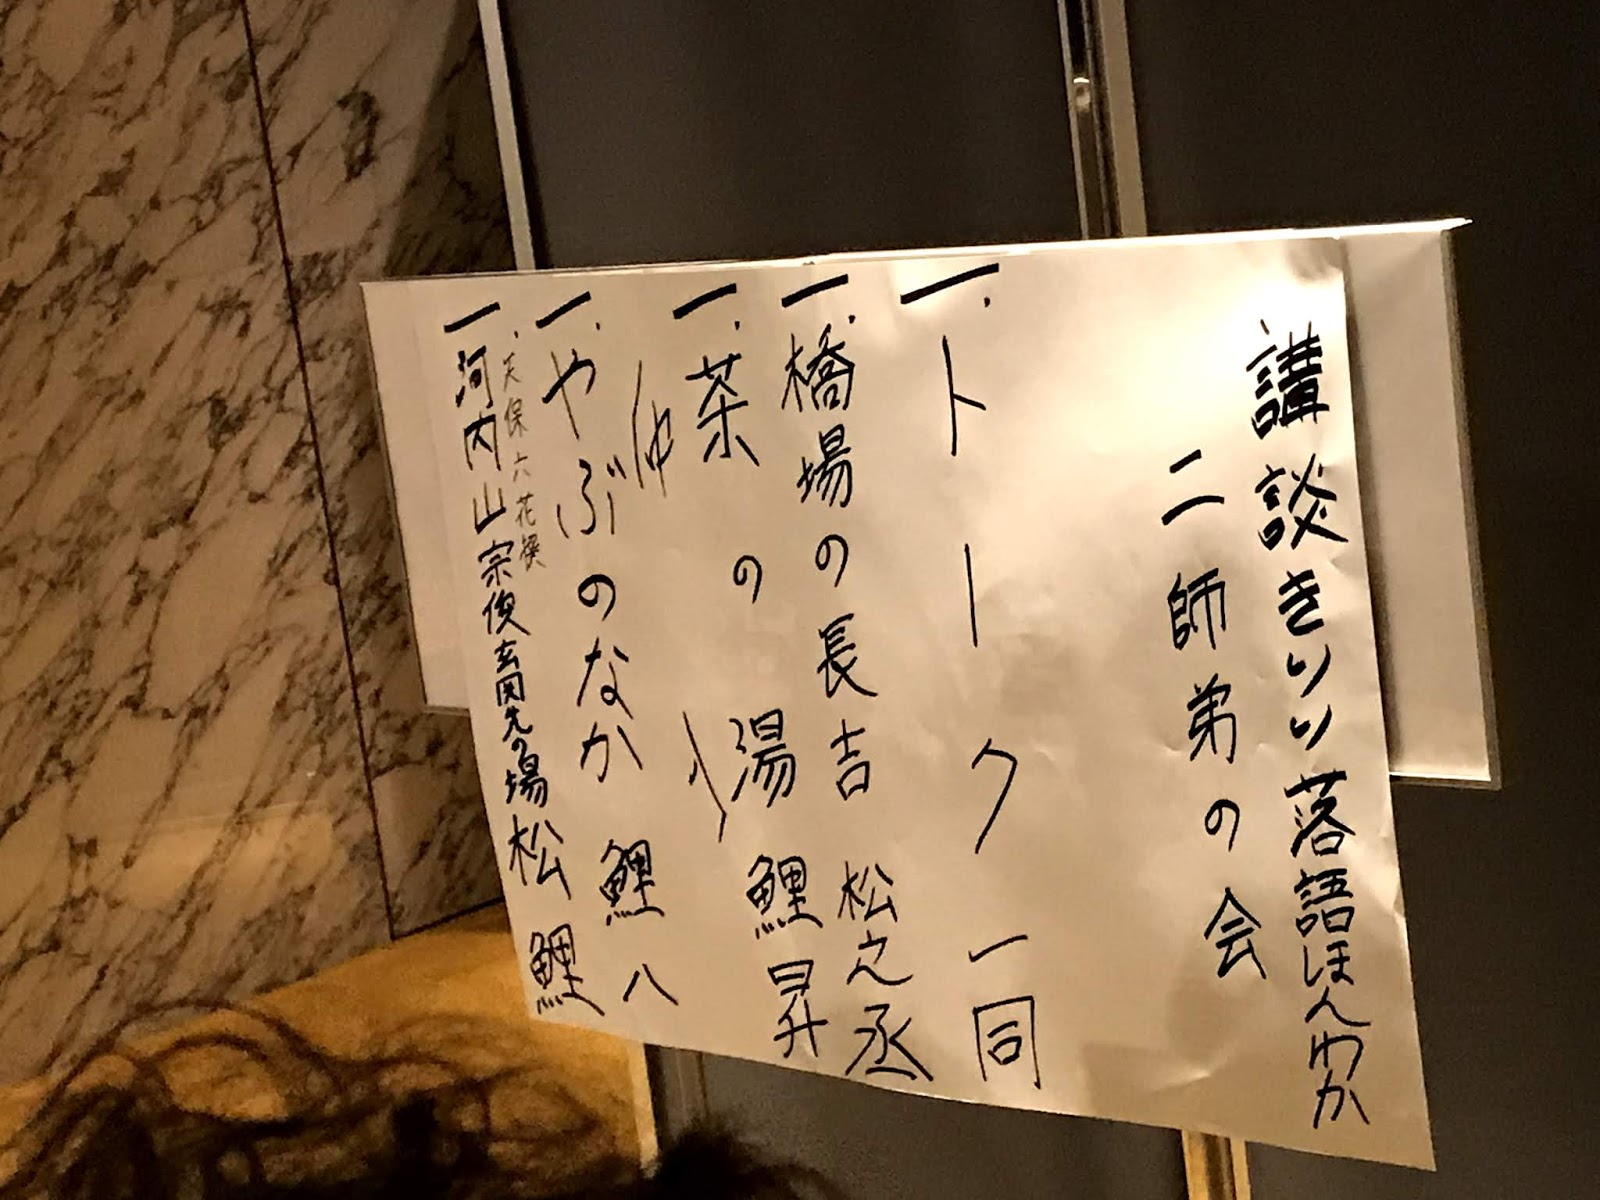 講談きりり落語ほんわか
二師弟の会
一.トーク 一同
一.橋場の長吉 松之丞
一.茶の湯 鯉昇
(仲入り)
一.やぶのなか 鯉八
天保六花撰
一.河内山宗俊玄関先の場 松鯉